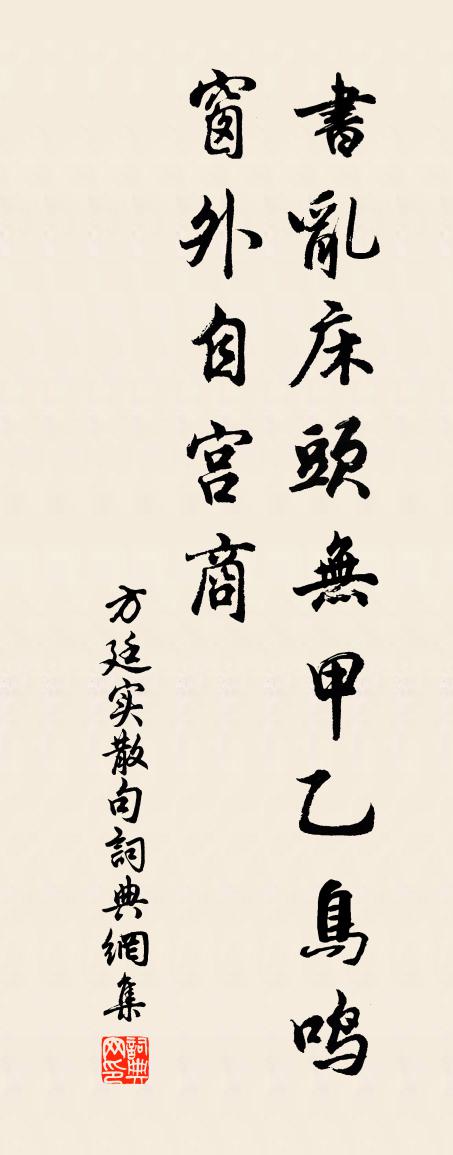 書亂床頭無甲乙鳥鳴
窗外自宫商
方廷实散句詞典網集
詞典网印